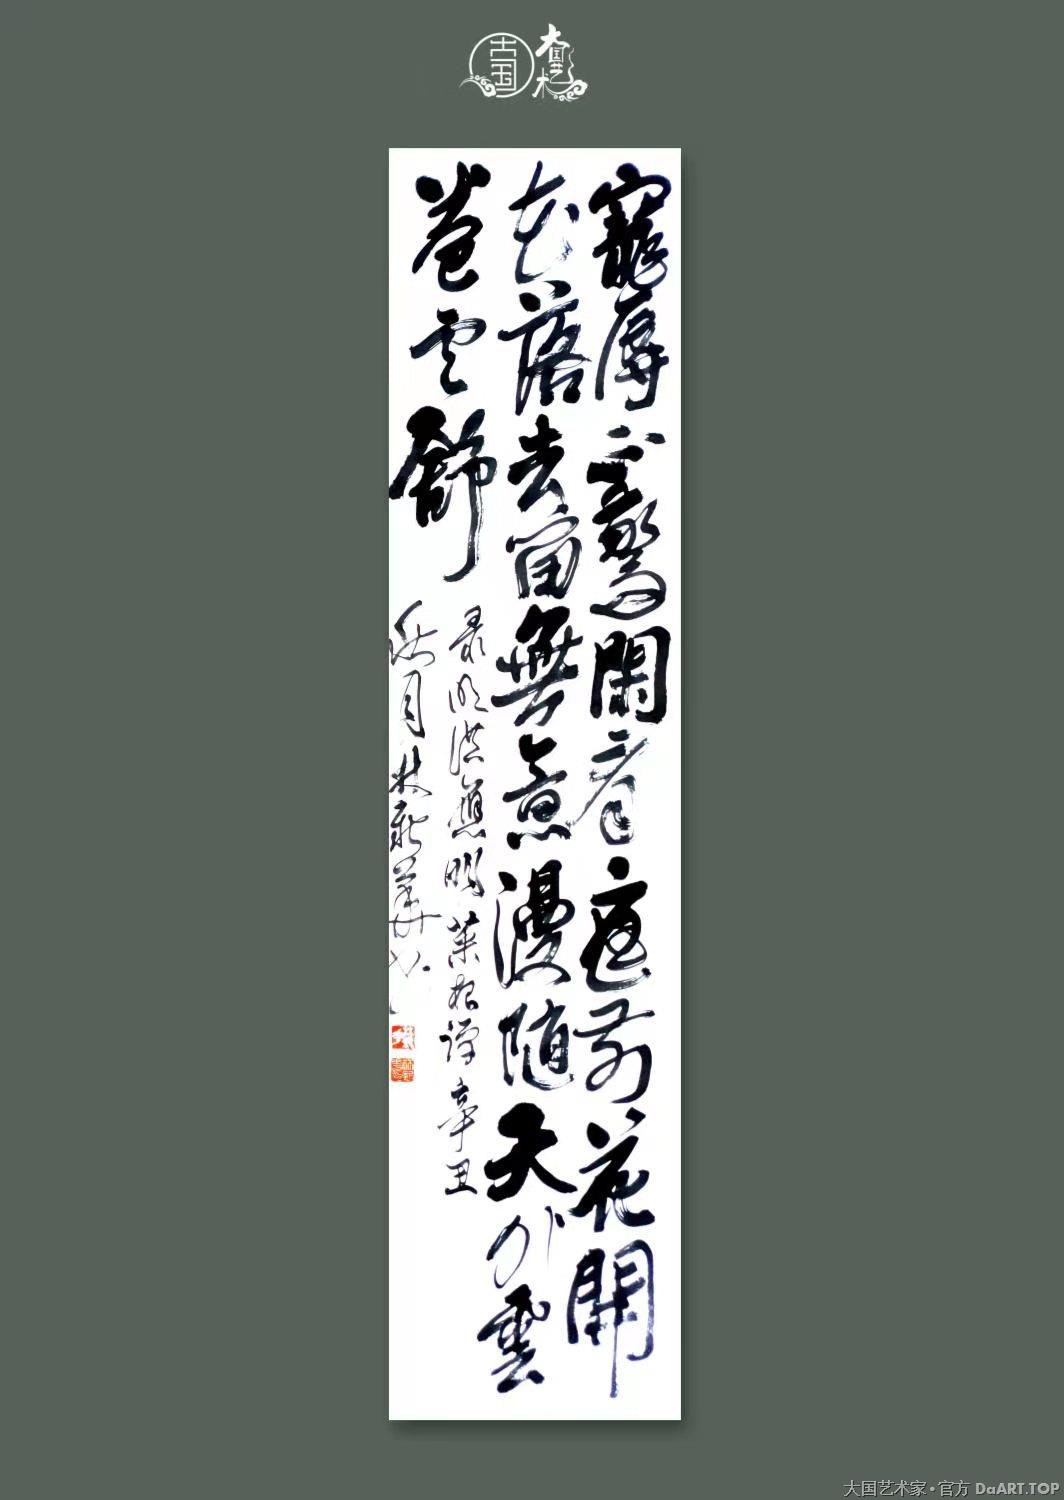 大国艺术
寵辱不驚閑看庭前花開
花落去留無意漫随天外雲
卷云舒
录明洪應明菜根譚辛丑
秋月林華书
大国艺术家•官方 DaART.TOP